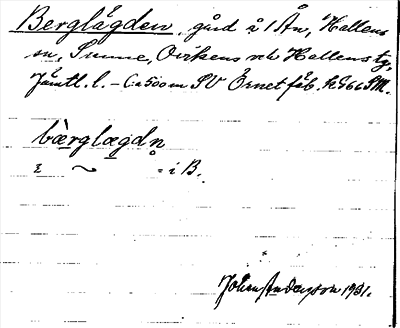 Berglägden, gård å 1 Ån, Hallens
sn, Sunne, Ovikens och Hallens tg,
Jämtl. l. - Ca 500 m SV Örnet fäb. h 566 SM.
bærglægdn̥
ε ~ = i B.
Johan Anderson 1931.